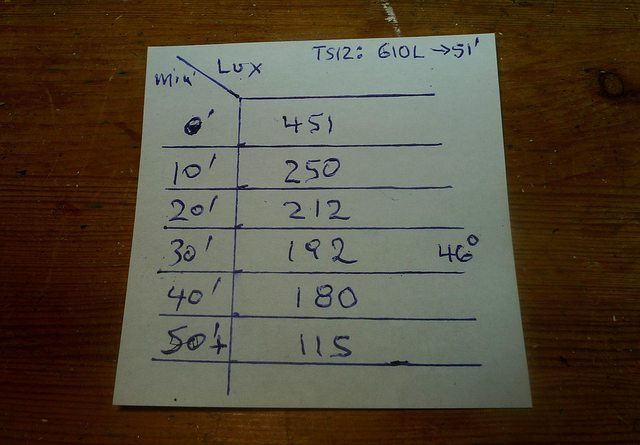 TS12: 610L → 51'
min' Lux
0' 451
10' 250
20' 212
30' 192 46°
40' 180
50'+ 115